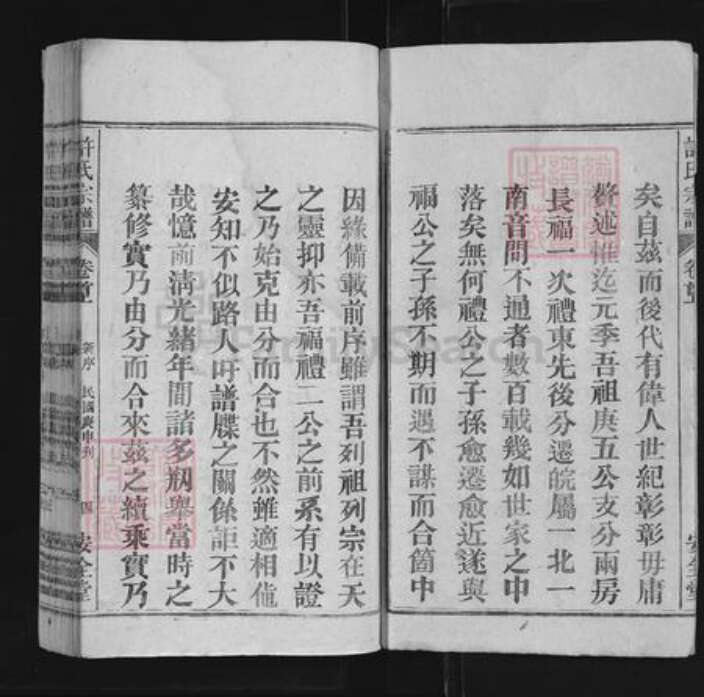 矣自茲而後代有偉人世紀彰彰毋庸
贅述惟迄元季吾祖庚五公支分兩房
長福一次禮東先後分遷皖屬一北一
南音問不通者數百載幾如世家之中
落矣無何禮公之子孫愈遷愈近遂與
福公之子孫不期而遇不謀而合箇中
因緣備載前序雖謂吾列祖列宗在天
之靈抑亦吾福禮二公之前系有以證
之乃始克由分而合也不然雖適相値
安知不似路人吁譜牒之關係詎不大
哉憶前清光緒年間諸多剏舉當時之
纂修實乃由分而合來茲之續乘實乃
許氏宗譜
卷首
新序
民國庚申刋
四
安全堂
許氏宗譜
卷首
安全堂
FamilySearch